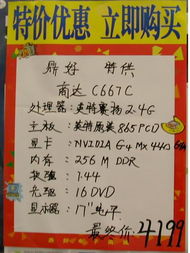 特价优惠 立即购买
鼎好 特供
商达 C667C
处理器:英特赛扬2.4G
主板:英特原装865PCD
显卡:NVIDIA G4 MX 440
内存:256M DDR
软驱:1.44
光驱:16DVD
显示器:17"纯平
最终价:4199